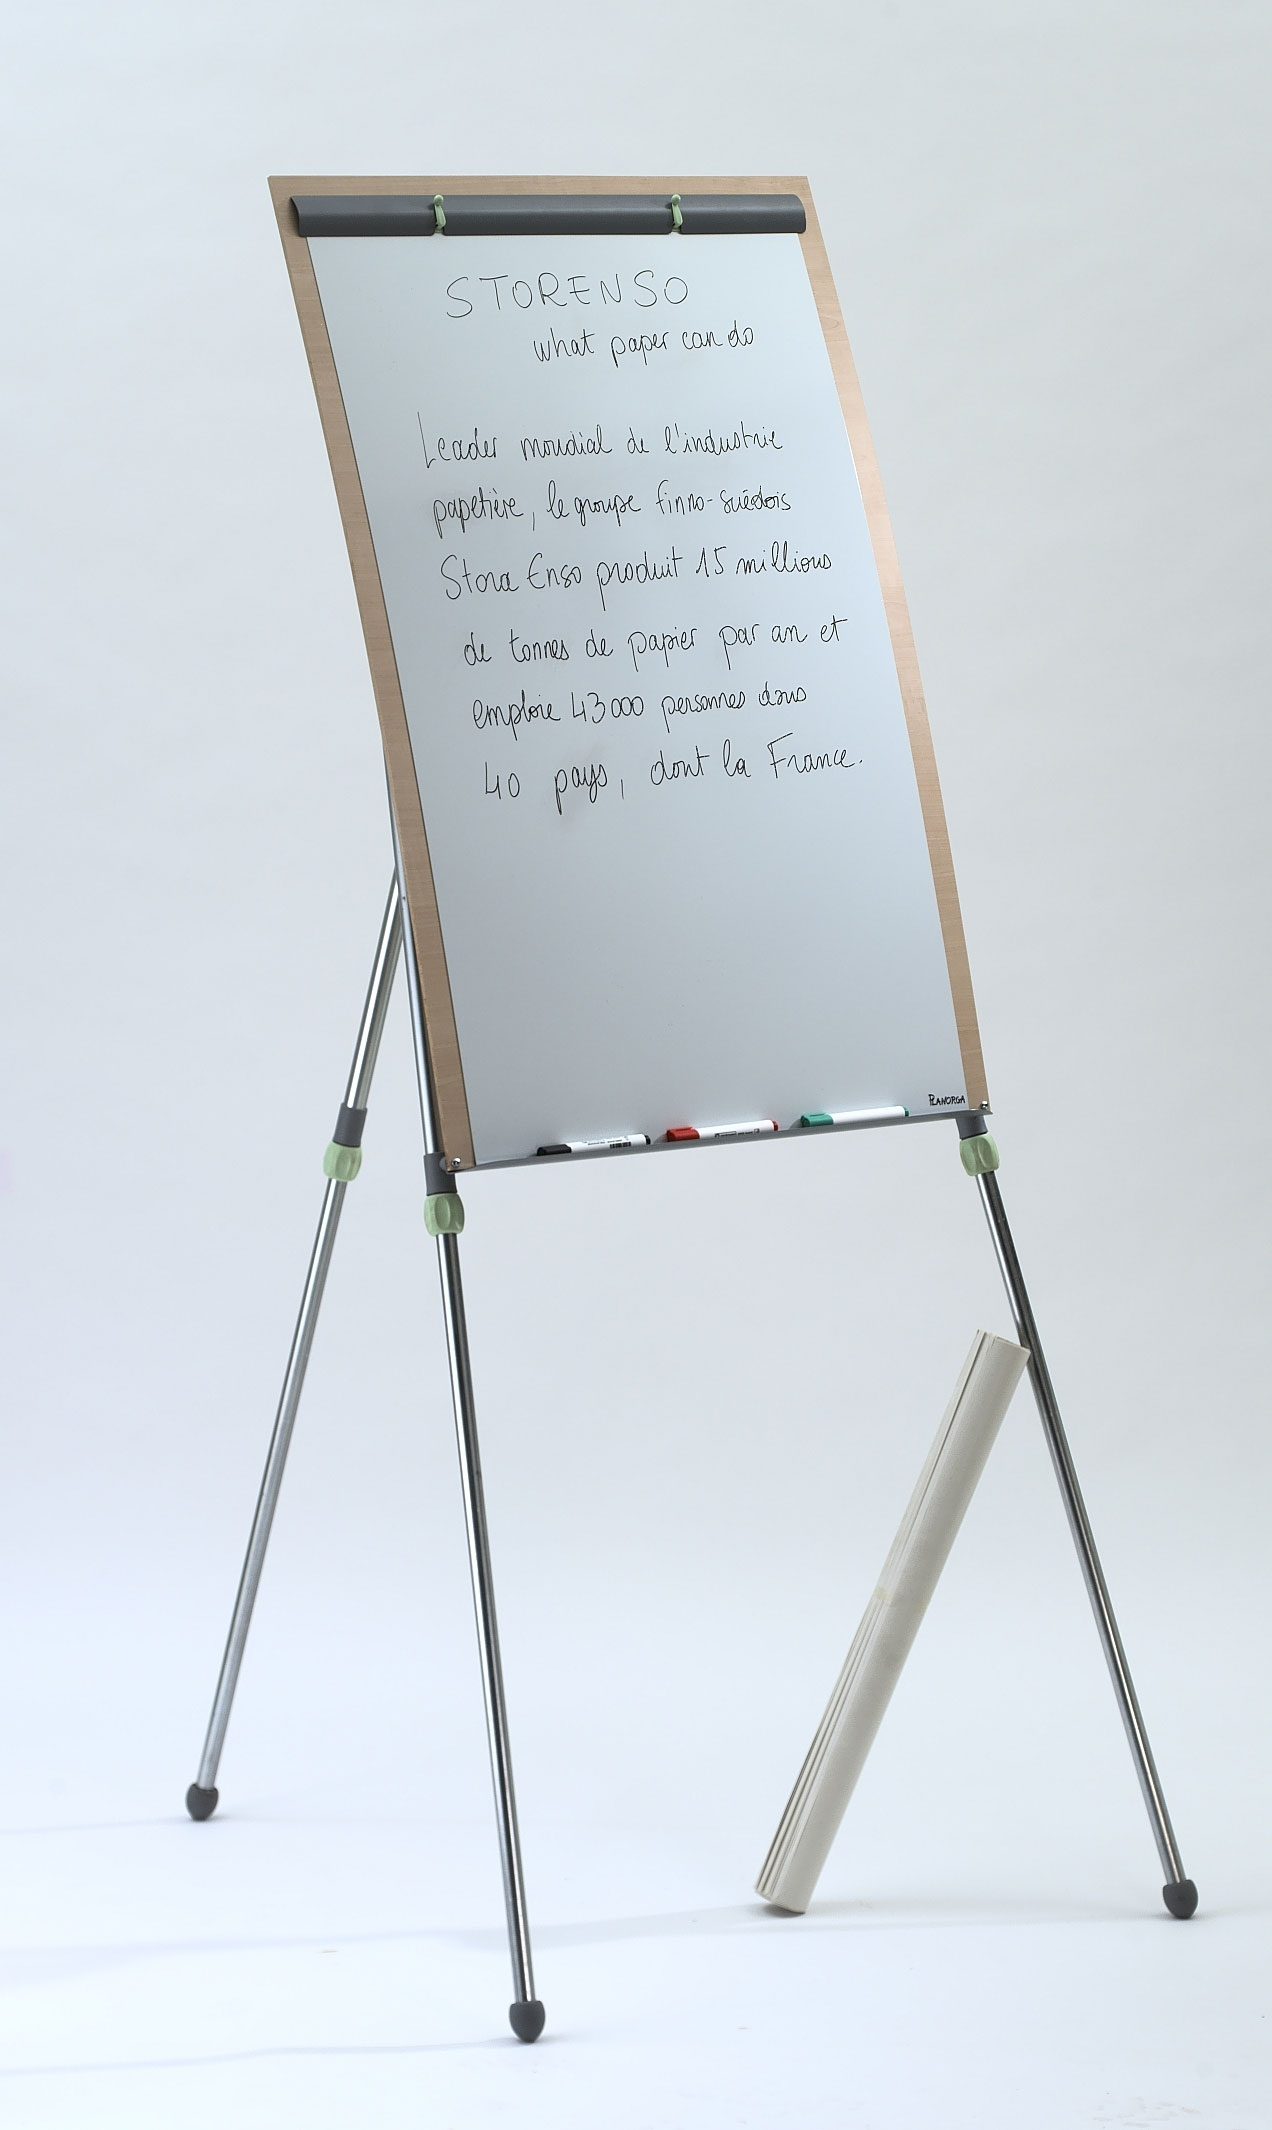 STORENSO
what paper can do
Leader mondial de l'industrie
papetière, le groupe finno-suédois
Stora Enso produit 15 millions
de tonnes de papier par an et
emploie 43000 personnes dans
40 pays, dont la France.
PLANORGA